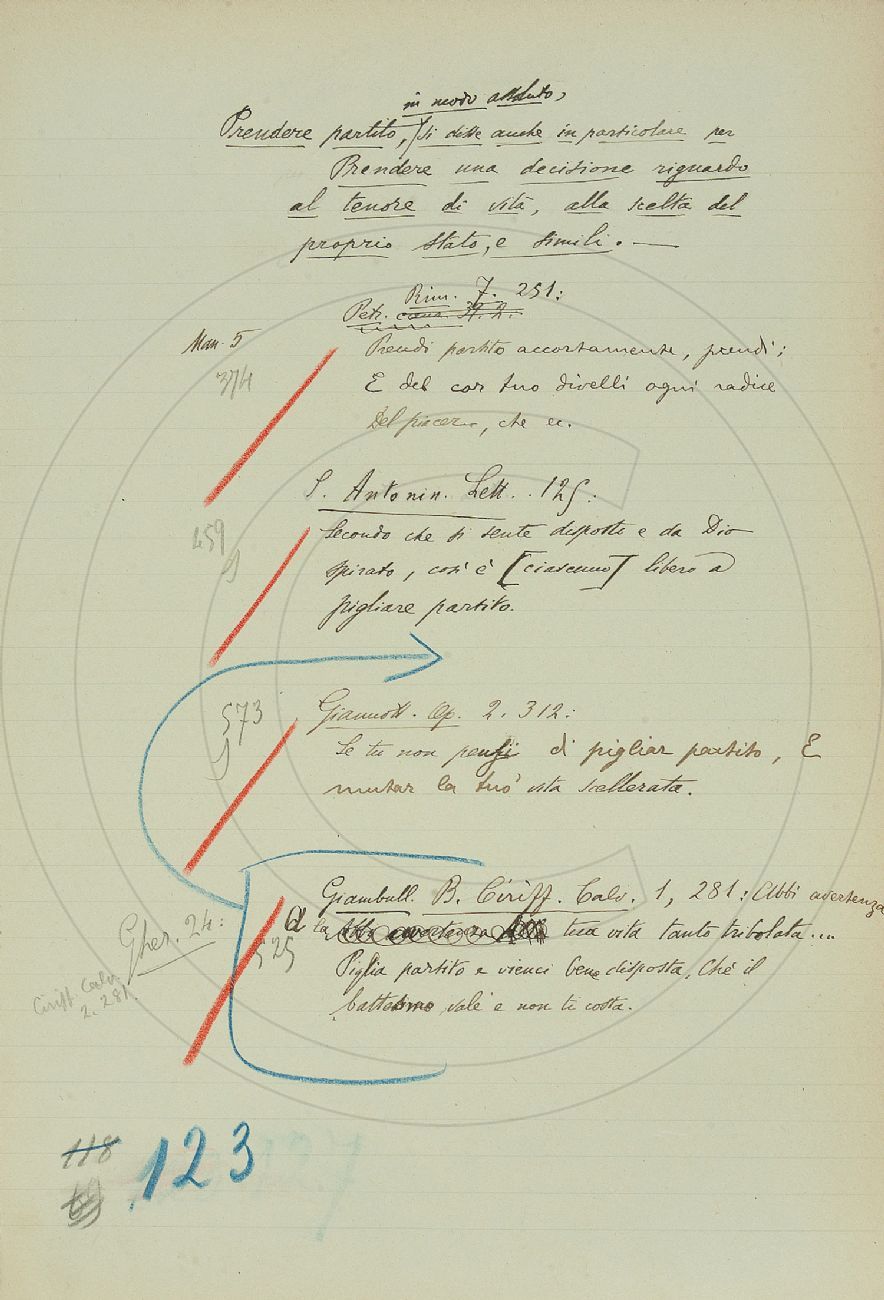 in modo assoluto,
Prendere partito, si disse anche in particolare per
Prendere una decisione riguardo
al tenore di vita, alla scelta del
proprio stato, e simili. —
Rim. 7. 251:
Petr. canz. St. 2.
Man. 5
Prendi partito accortamente, prendi;
374
E del cor tuo divelli ogni radice
Del piacer..., che ec.
S. Antonin. Lett. 125:
459
Secondo che si sente disposto e da Dio
spirato, così è [ciascuno] libero a
pigliare partito.
573
Giannott. Op. 2. 312:
Se tu non pensi di pigliar partito, E
mutar la tuo' vita scellerata.
Giambull. B. Ciriff. Calv. 1, 281: Abbi avertenza
a la tua vita tanto tribolata...
Gher. 24:
525
Piglia partito e vienci bene disposta, Chè il
Ciriff Calv.
2. 281.
battesmo vale e non ti costa.
118
123